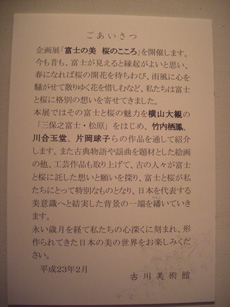 ごあいさつ
企画展「富士の美 桜のこころ」を開催します。
今も昔も、富士が見えると縁起がよいと思い、
春になれば桜の開花を待ちわび、雨風に心を
騒がせて散りゆく花を惜しむなど、私たちは富士
と桜に格別の想いを寄せてきました。
本展ではその富士と桜の魅力を横山大観の
『三保之富士・松原』をはじめ、竹内栖鳳、
川合玉堂、片岡球子らの作品を通して紹介
します。また古典物語や謡曲を題材とした絵画
の他、工芸作品も取り上げて、古の人々が富士
と桜に託した想いと願いを探り、富士と桜が私
たちにとって特別なものとなり、日本を代表する
美意識へと結実した背景の一端を繙いていき
ます。
永い歳月を経て私たちの心深くに刻まれ、形
作られてきた日本の美の世界をお楽しみくださ
い。
平成23年2月
古川美術館